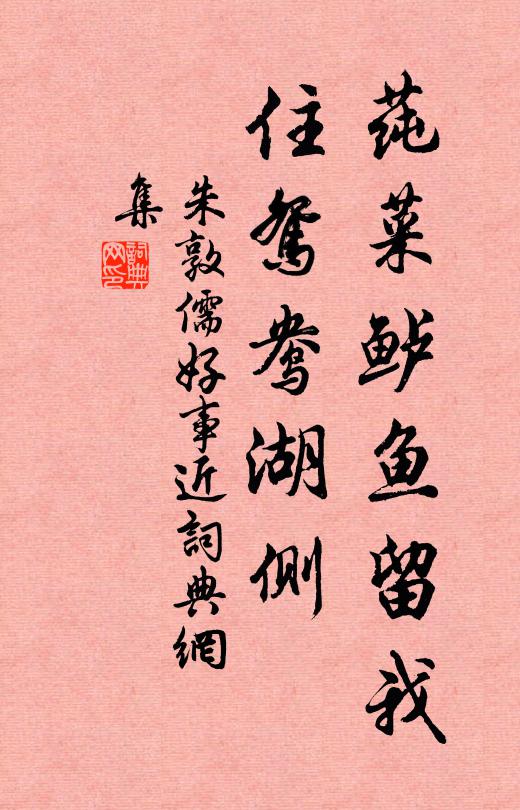 莼菜鲈鱼留我
住鸳鸯湖侧
朱敦儒好事近詞典網
集
詞典
网印